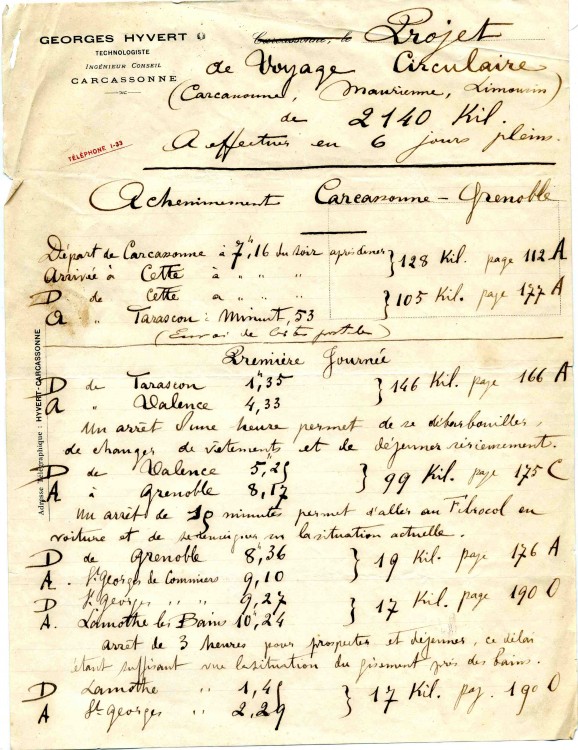 GEORGES HYVERT
TECHNOLOGISTE
INGÉNIEUR CONSEIL
CARCASSONNE
TÉLÉPHONE 1-33
Adresse Télégraphique : HYVERT-CARCASSONNE
Carcassonne, le
Projet
de Voyage Circulaire
(Carcassonne, Maurienne, Limousin)
de 2140 Kil.
A effectuer en 6 jours pleins.
Acheminement Carcassonne - Grenoble
Départ de Carcassonne à 7h,16 du soir après diner } 128 Kil. page 112 A
Arrivée à Cette à " " "
D de Cette a " " " } 105 Kil. page 177 A
A " Tarascon : Minuit, 53
(Envoi de)
Première Journée
D de Tarascon 1h,35 } 146 Kil. page 166 A
A " Valence 4,33
Un arrêt d'une heure permet de se débarbouiller,
de changer de vêtements et de déjeuner sérieusement.
D de Valence 5,25 } 99 Kil. page 175 C
A à Grenoble 8,17
Un arrêt de 19 minutes permet d'aller au Fibrocol en
voiture et de se renseigner sur la situation actuelle.
D de Grenoble 8h,36 } 19 Kil. page 176 A
A. St Georges de Commiers 9,10
D St Georges " " " 9,27 } 17 Kil. page 190 O
A. Lamothe les Bains 10,24
arrêt de 3 heures pour prospecter et déjeuner, ce délai
étant suffisant vue la situation du gisement près des bains.
D Lamothe " 1,45 } 17 Kil. pag. 190 O
A St Georges " 2,29